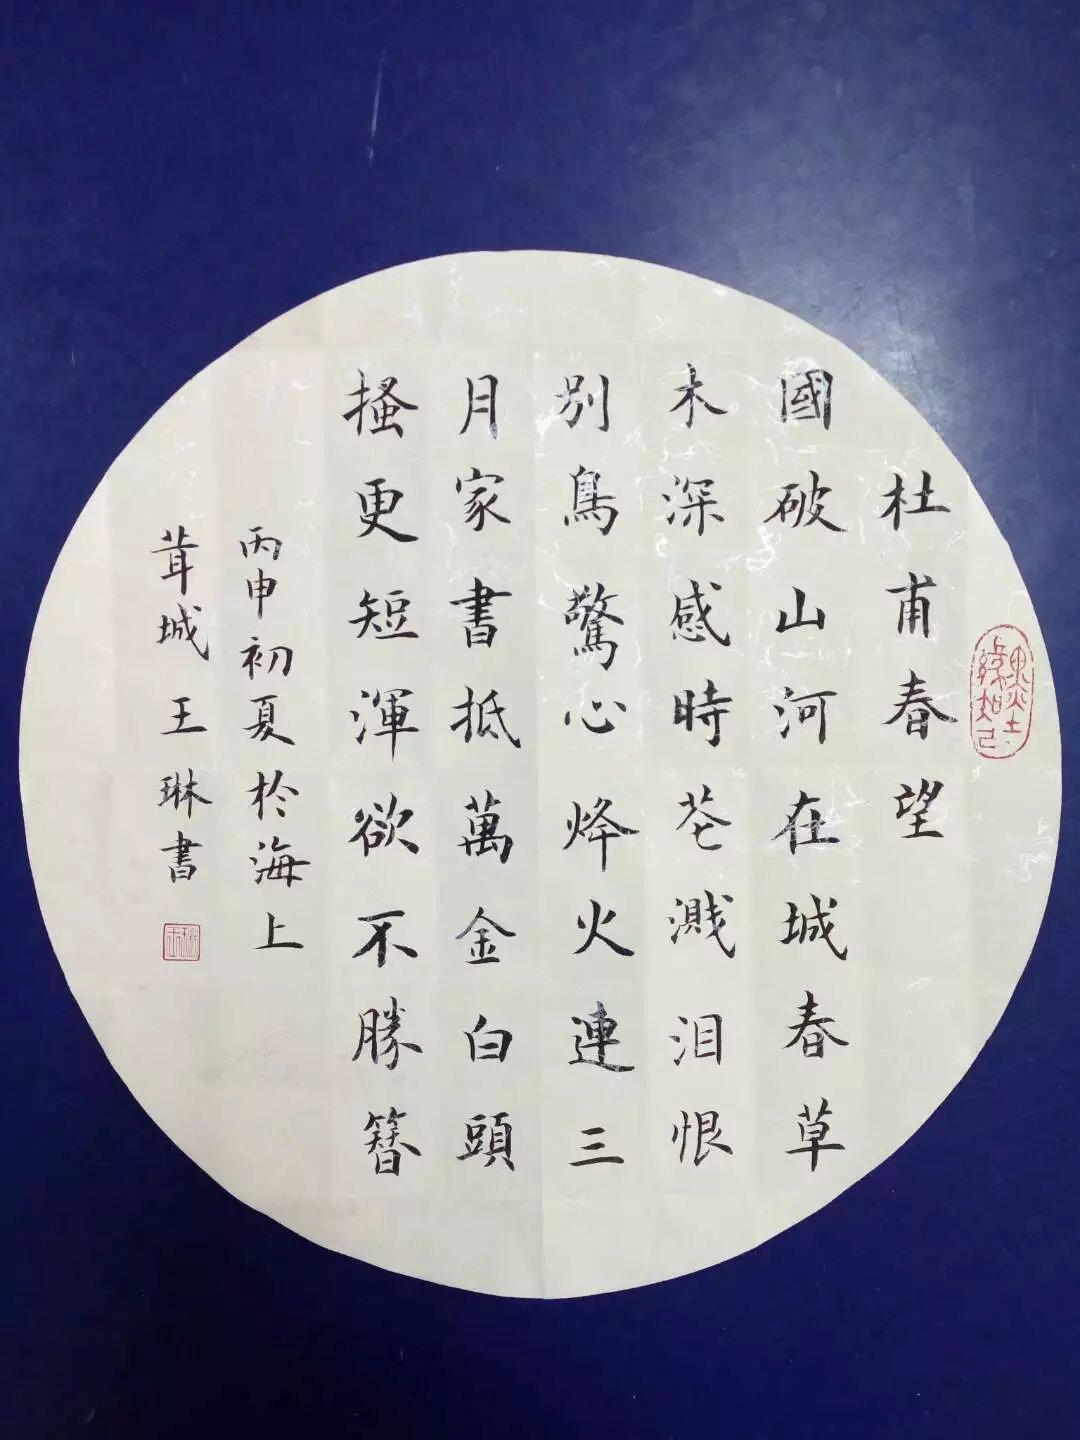 杜甫春望
國破山河在城春草
木深感時花濺泪恨
別鳥驚心烽火連三
月家書抵萬金白頭
搔更短渾欲不勝簪
丙申初夏於海上
茸城王琳書